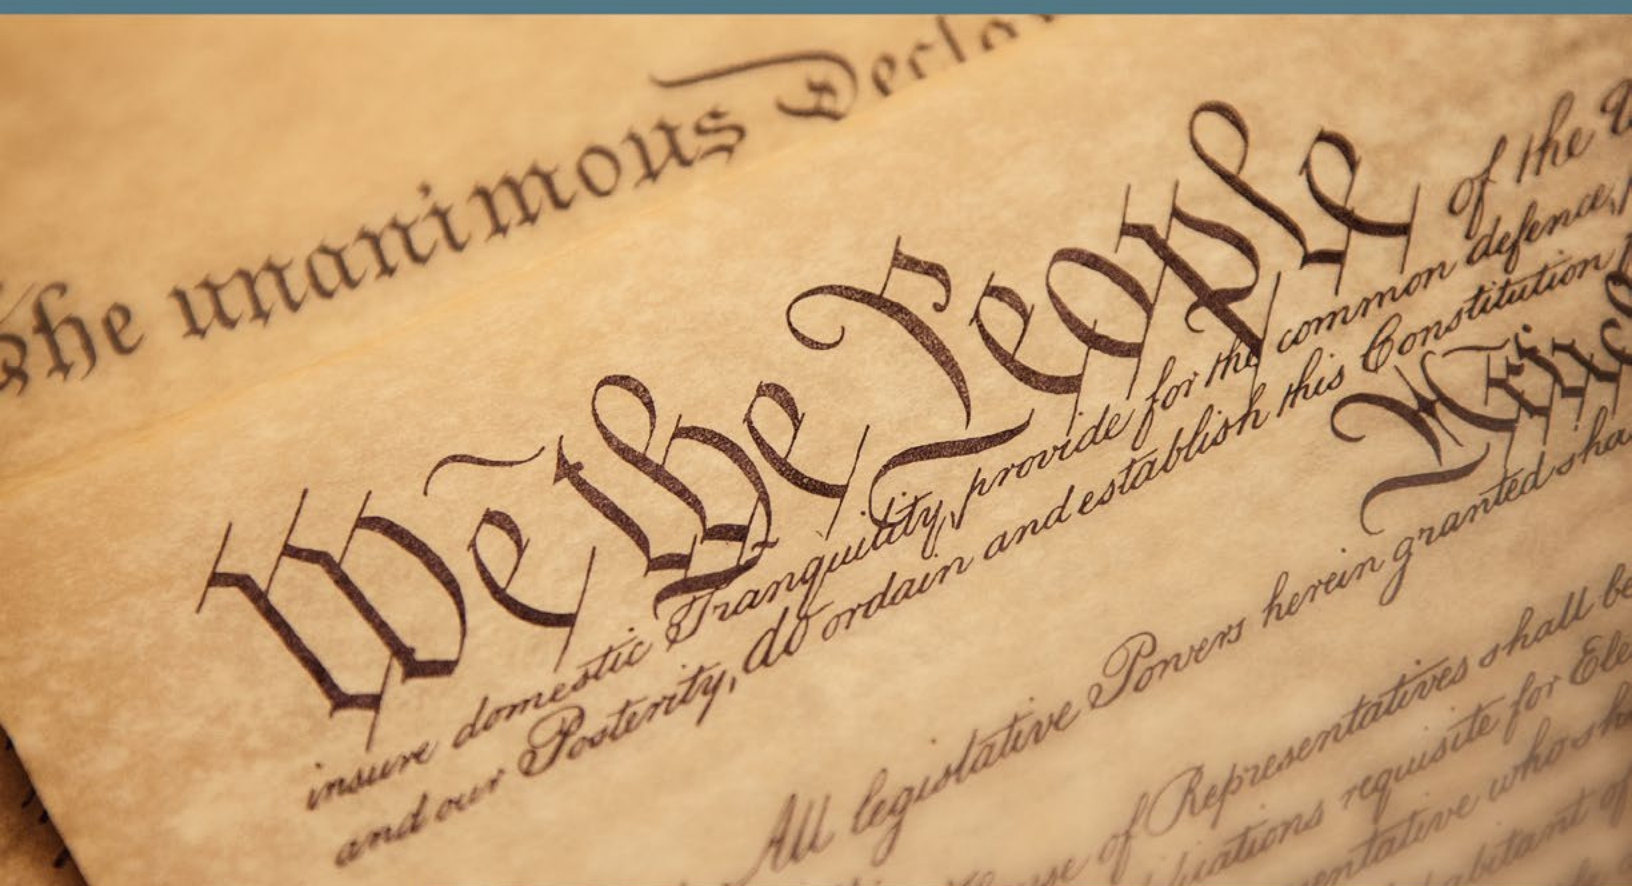 The unanimous Decla
We the People of the
insure domestic Tranquility, provide for the common defence,
and our Posterity, do ordain and establish this Constitution
All legislative Powers herein granted sha
of Representatives shall be
requisite for Ele
who sh
of